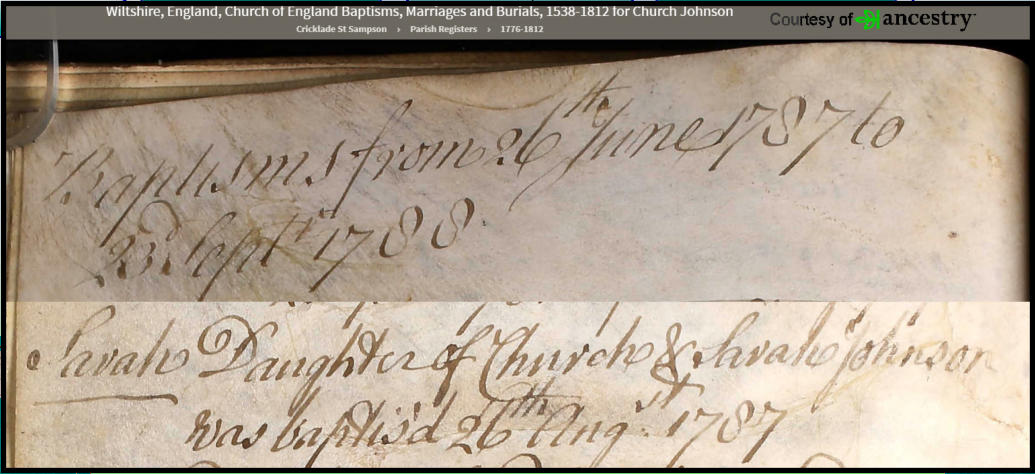 Wiltshire, England, Church of England Baptisms, Marriages and Burials, 1538-1812 for Church Johnson
Cricklade St Sampson › Parish Registers › 1776-1812
Courtesy of ancestry
Baptisms from 26th June 1787 to
23d Septr 1788
Sarah Daughter of Church & Sarah Johnson
was baptis'd 26th Augst 1787